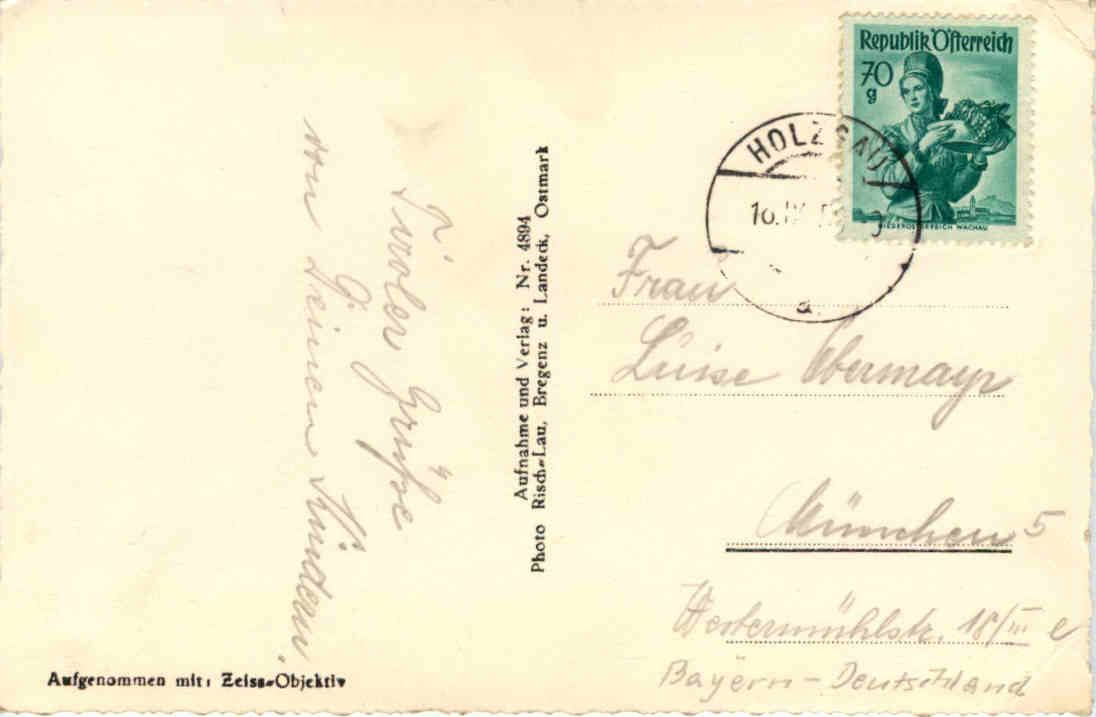 Tiroler Grüße
von Deinen Kindern.
Aufgenommen mit: Zeiss-Objektiv
Aufnahme und Verlag: Nr. 4894
Photo Risch-Lau, Bregenz u. Landeck, Ostmark
Republik Österreich
70
g
NIEDERÖSTERREICH WACHAU
HOLZGAU
16.IX
a
Frau
Luise Obermayr
München 5
Westermühlstr. 18/III e
Bayern - Deutschland